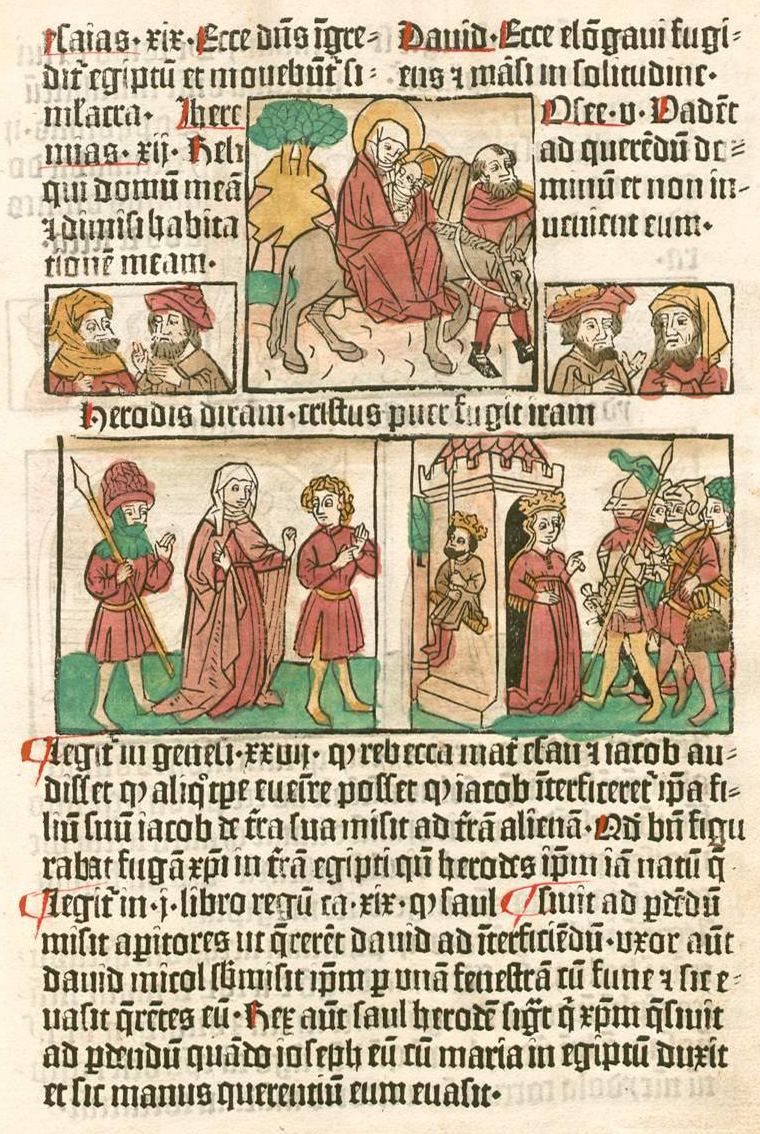 ysaias· xix· Ecce dn̄s īgre-
dit̄ egiptū et mouebūt̄ si-
mlacra· Jhere
mias· xij· Reli
qui domū meā
⁊ dimisi habita
tionē meam·
Dauid· Ecce elōgaui fugi-
ens ⁊ māsi in solitudine·
Osee· v· Vadēt
ad querēdū do-
minū et non in-
uenient eum·
Herodis diram· cristus puer fugit iram
Legit̄ in genesi· xxvij· ꝙ rebecca mat̄ esau ⁊ iacob au-
disset ꝙ aliqͦ tꝑe eueīre posset ꝙ iacob īterficeret̄ ip̄a fi-
liū suū iacob de t̄ra sua misit ad t̄rā alienā· Qd̄ bn̄ figu
rabat fugā xp̄i in t̄rā egipti qn̄ herodes ip̄m iā natū q̄
Legit̄ in· j· libro regū ca· xix· ꝙ saul siuit ad ꝑdēdū
misit apitores ut q̄rerēt dauid ad īterficiēdū· vxor aūt
dauid micol sbmisit ip̄m ꝑ vnā fenestrā cū fune ⁊ sic e-
uasit q̄rētes eū· Rex aūt saul herodē sigt̄ q̄ xp̄m q̄siuit
ad ꝑdendū quādo ioseph eū cū maria in egiptū duxit
et sic manus querentiū eum euasit·